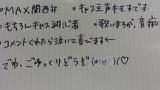 ○MAX関西弁 ○キャス主声キモすです
○もちろんキャス初心者 ○歌いますが、音痴
○コメントくれたら泣いて喜びます←
でわ、ごゆっくりどうぞ(ω)/♡